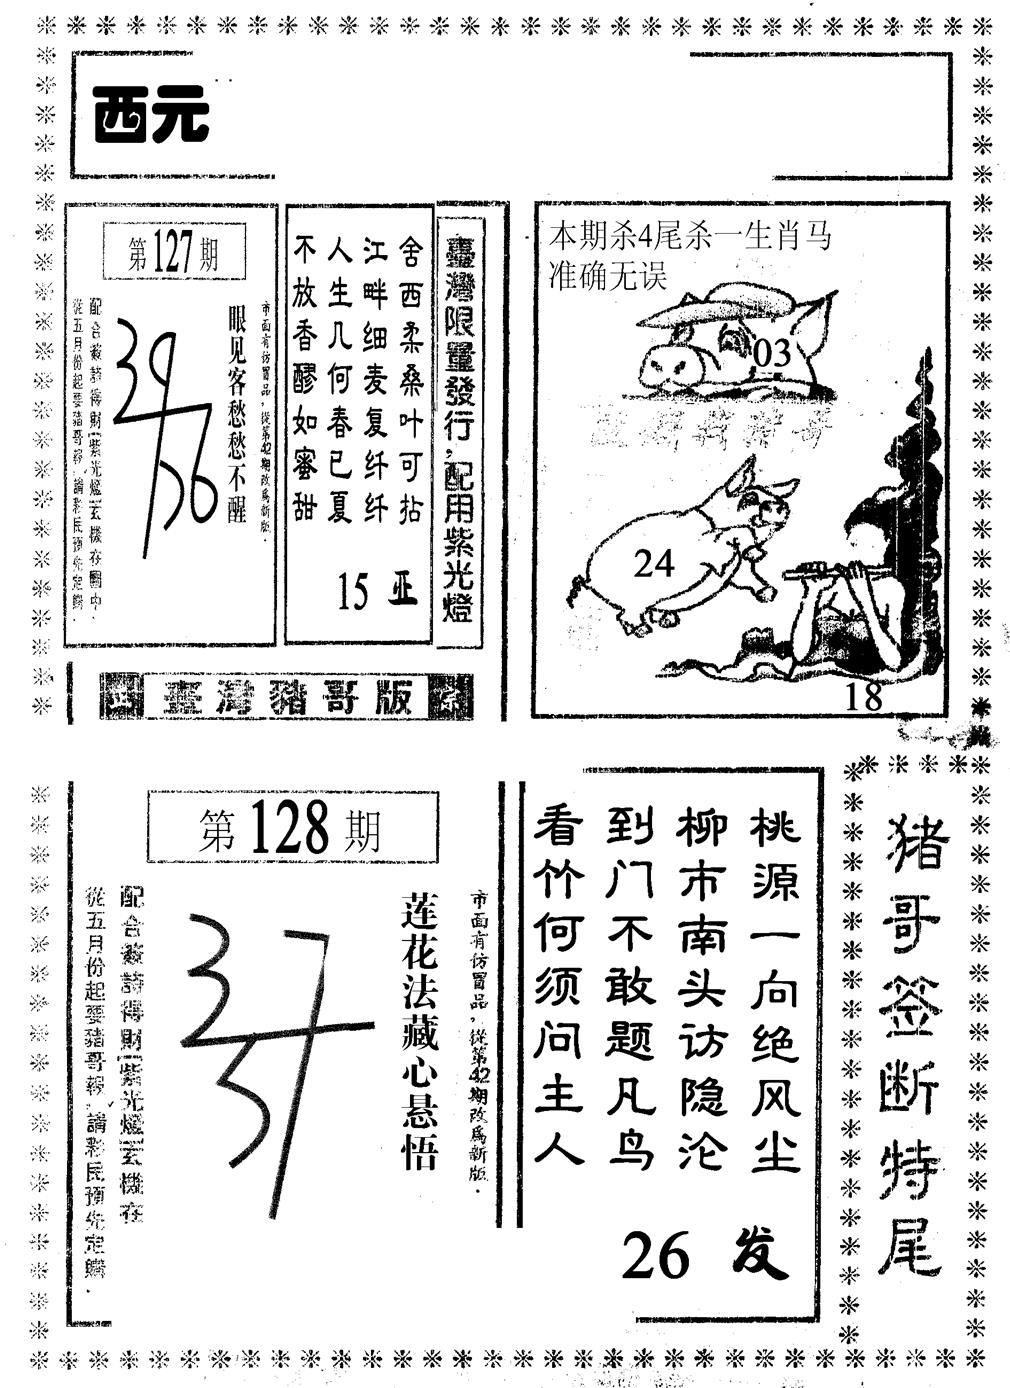 西元
第127期
市面有仿冒品，從第42期改爲新版．
眼见客愁愁不醒
39
56
配合簽詩得財(紫光燈)玄機在圖中．
從五月份起要豬哥報，請彩民預先定購．
舍西柔桑叶可拈
江畔细麦复纤纤
人生几何春已夏
不放香醪如蜜甜
15 亚
臺灣限量發行，配用紫光燈
本期杀4尾杀一生肖马
准确无误
03
24
18
臺灣豬哥版
第128期
市面有仿冒品，從第42期改爲新版．
莲花法藏心悬悟
37
配合簽詩得財(紫光燈)玄機在
從五月份起要豬哥報，請彩民預先定購．
桃源一向绝风尘
柳市南头访隐沦
到门不敢题凡鸟
看竹何须问主人
26 发
猪哥签断特尾